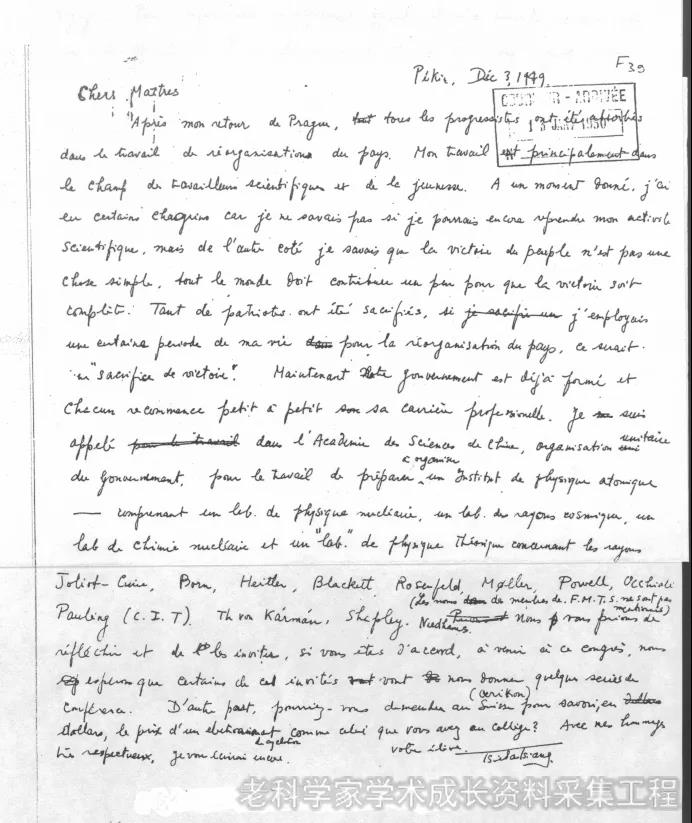 F39
Pékin, Déc 3, 1949
COURRIER - ARRIVÉE
13 1950
Chers Maîtres
"Après mon retour de Prague, tout tous les progressistes ont été absorbés
dans le travail de réorganisations du pays. Mon travail est principalement dans
le champ de travailleurs scientifiques et de la jeunesse. A un moment donné, j'ai
eu certains chagrins car je ne savais pas si je pourrais encore reprendre mon activité
scientifique, mais de l'autre coté je savais que la victoire du peuple n'est pas une
chose simple, tout le monde doit contribuer un peu pour que la victoire soit
complète. Tant de patriotes ont été sacrifiés, si je sacrifie un j'employais
une certaine periode de ma vie dans pour la réorganisation du pays, ce serait
un "sacrifice de victoire". Maintenant Notre gouvernement est déjà formé et
chacun recommence petit à petit son sa carrière professionnelle. Je suis
appelé pour le travail dans l'Academie des Sciences de Chine, organisation unitaire
du Gouvernement, pour le travail de préparer à organiser un Institut de physique atomique
— comprenant un lab. de physique nucléaire, un lab. des rayons cosmique, un
lab de chimie nucléaire et un "lab." de physique théorique concernant les rayons
Joliot-Curie, Born, Heitler, Blackett, Rosenfeld, Møller, Powell, Occhialini
(Les noms des membres de F.M.T.S. ne sont pas mentionnés)
Pauling (C.I.T). Th von Kármán, Shapley. Needham. Nous vous prions de
réfléchir et de les inviter, si vous êtes d'accord, à venir à ce congrès, nous
esperons que certains de cet invités vont nous donner quelques series de
conférence. D'autre part, pourriez-vous demander au Suisse (Oerikon) pour savoir, en
dollars, le prix d'un comme celui que vous avez au collège? Avec mes hommages
très respectueux, je vous écrirai encore.
votre élève
Tsien San-Tsiang
老科学家学术成长资料采集工程